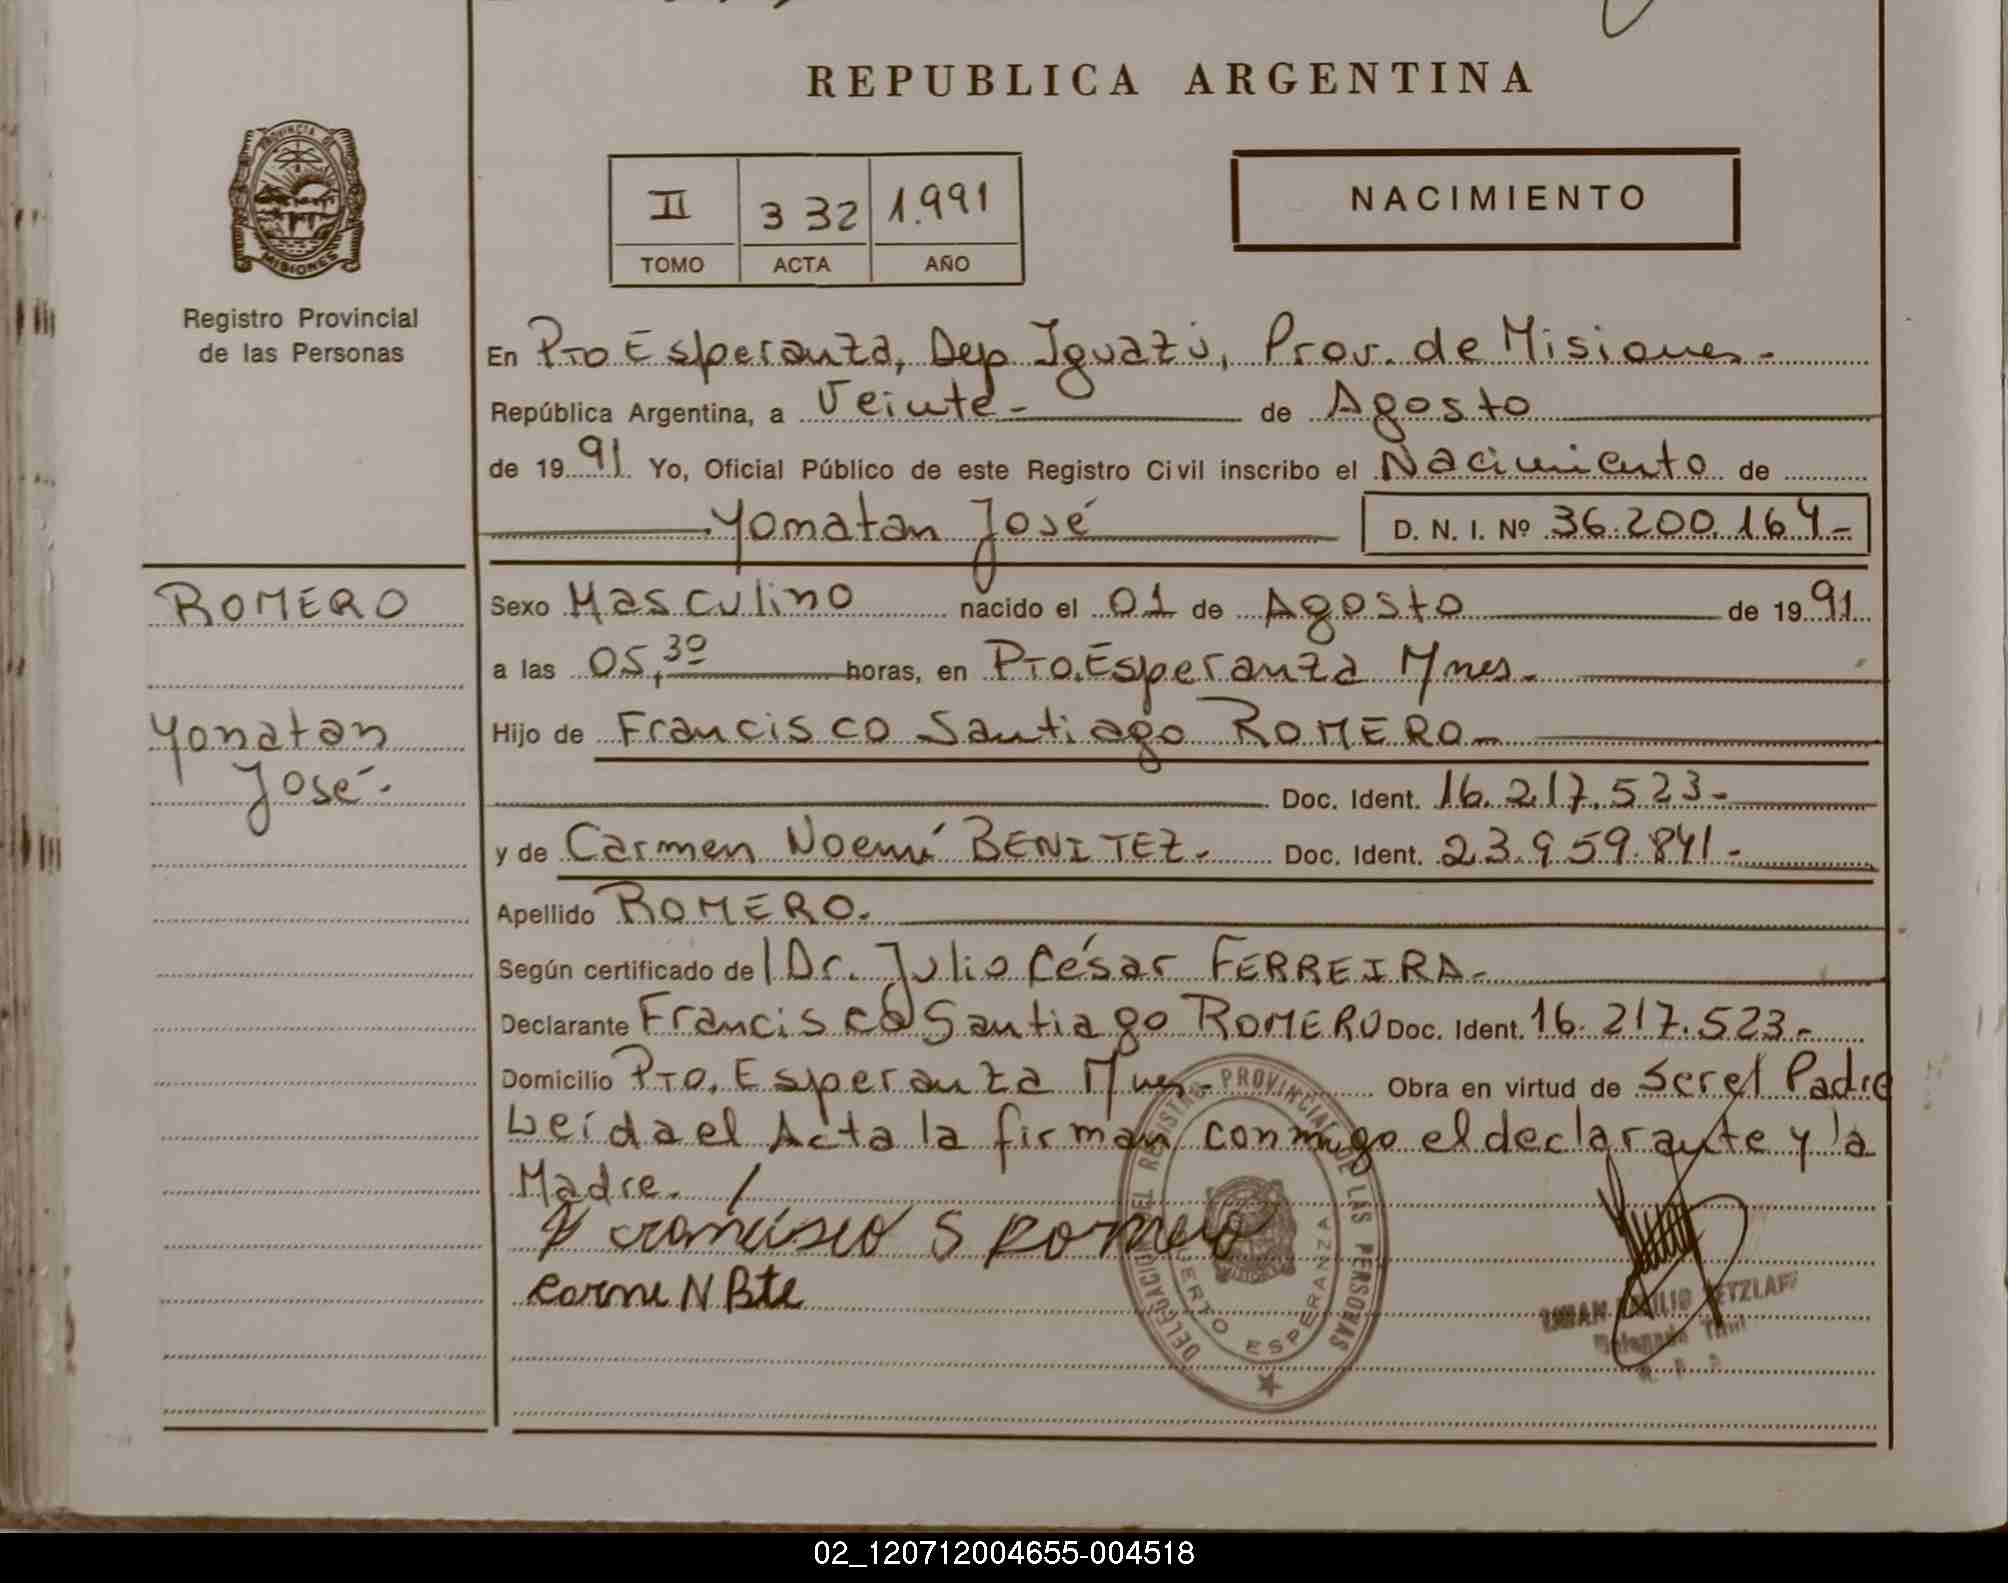 REPUBLICA ARGENTINA
PROVINCIA DE
MISIONES
Registro Provincial
de las Personas
II 332 1.991
TOMO ACTA AÑO
NACIMIENTO
En Pto Esperanza, Dep Iguazú, Prov. de Misiones.-
República Argentina, a Veinte- de Agosto
de 1991 Yo, Oficial Público de este Registro Civil inscribo el Nacimiento de
Yomatan José D. N. I. Nº 36.200.164-
ROMERO
Yonatan
José-.
Sexo Masculino nacido el 01 de Agosto de 1991
a las 05,30 horas, en Pto.Esperanza Mnes.
Hijo de Francisco Santiago ROMERO-
Doc. Ident. 16.217.523-
y de Carmen Noemí BENITEZ- Doc. Ident. 23.959.841-
Apellido ROMERO.
Según certificado del Dr. Julio César FERREIRA-
Declarante Francisco Santiago ROMERO Doc. Ident. 16.217.523-
Domicilio Pto. Esperanza Mnes- Obra en virtud de Ser el Padre
Leída el Acta la firman conmigo el declarante y la
Madre. /
Francisco S Romero
Carme N Bte
DELEGACION DEL REGISTRO PROVINCIAL DE LAS PERSONAS
PUERTO ESPERANZA
02_120712004655-004518